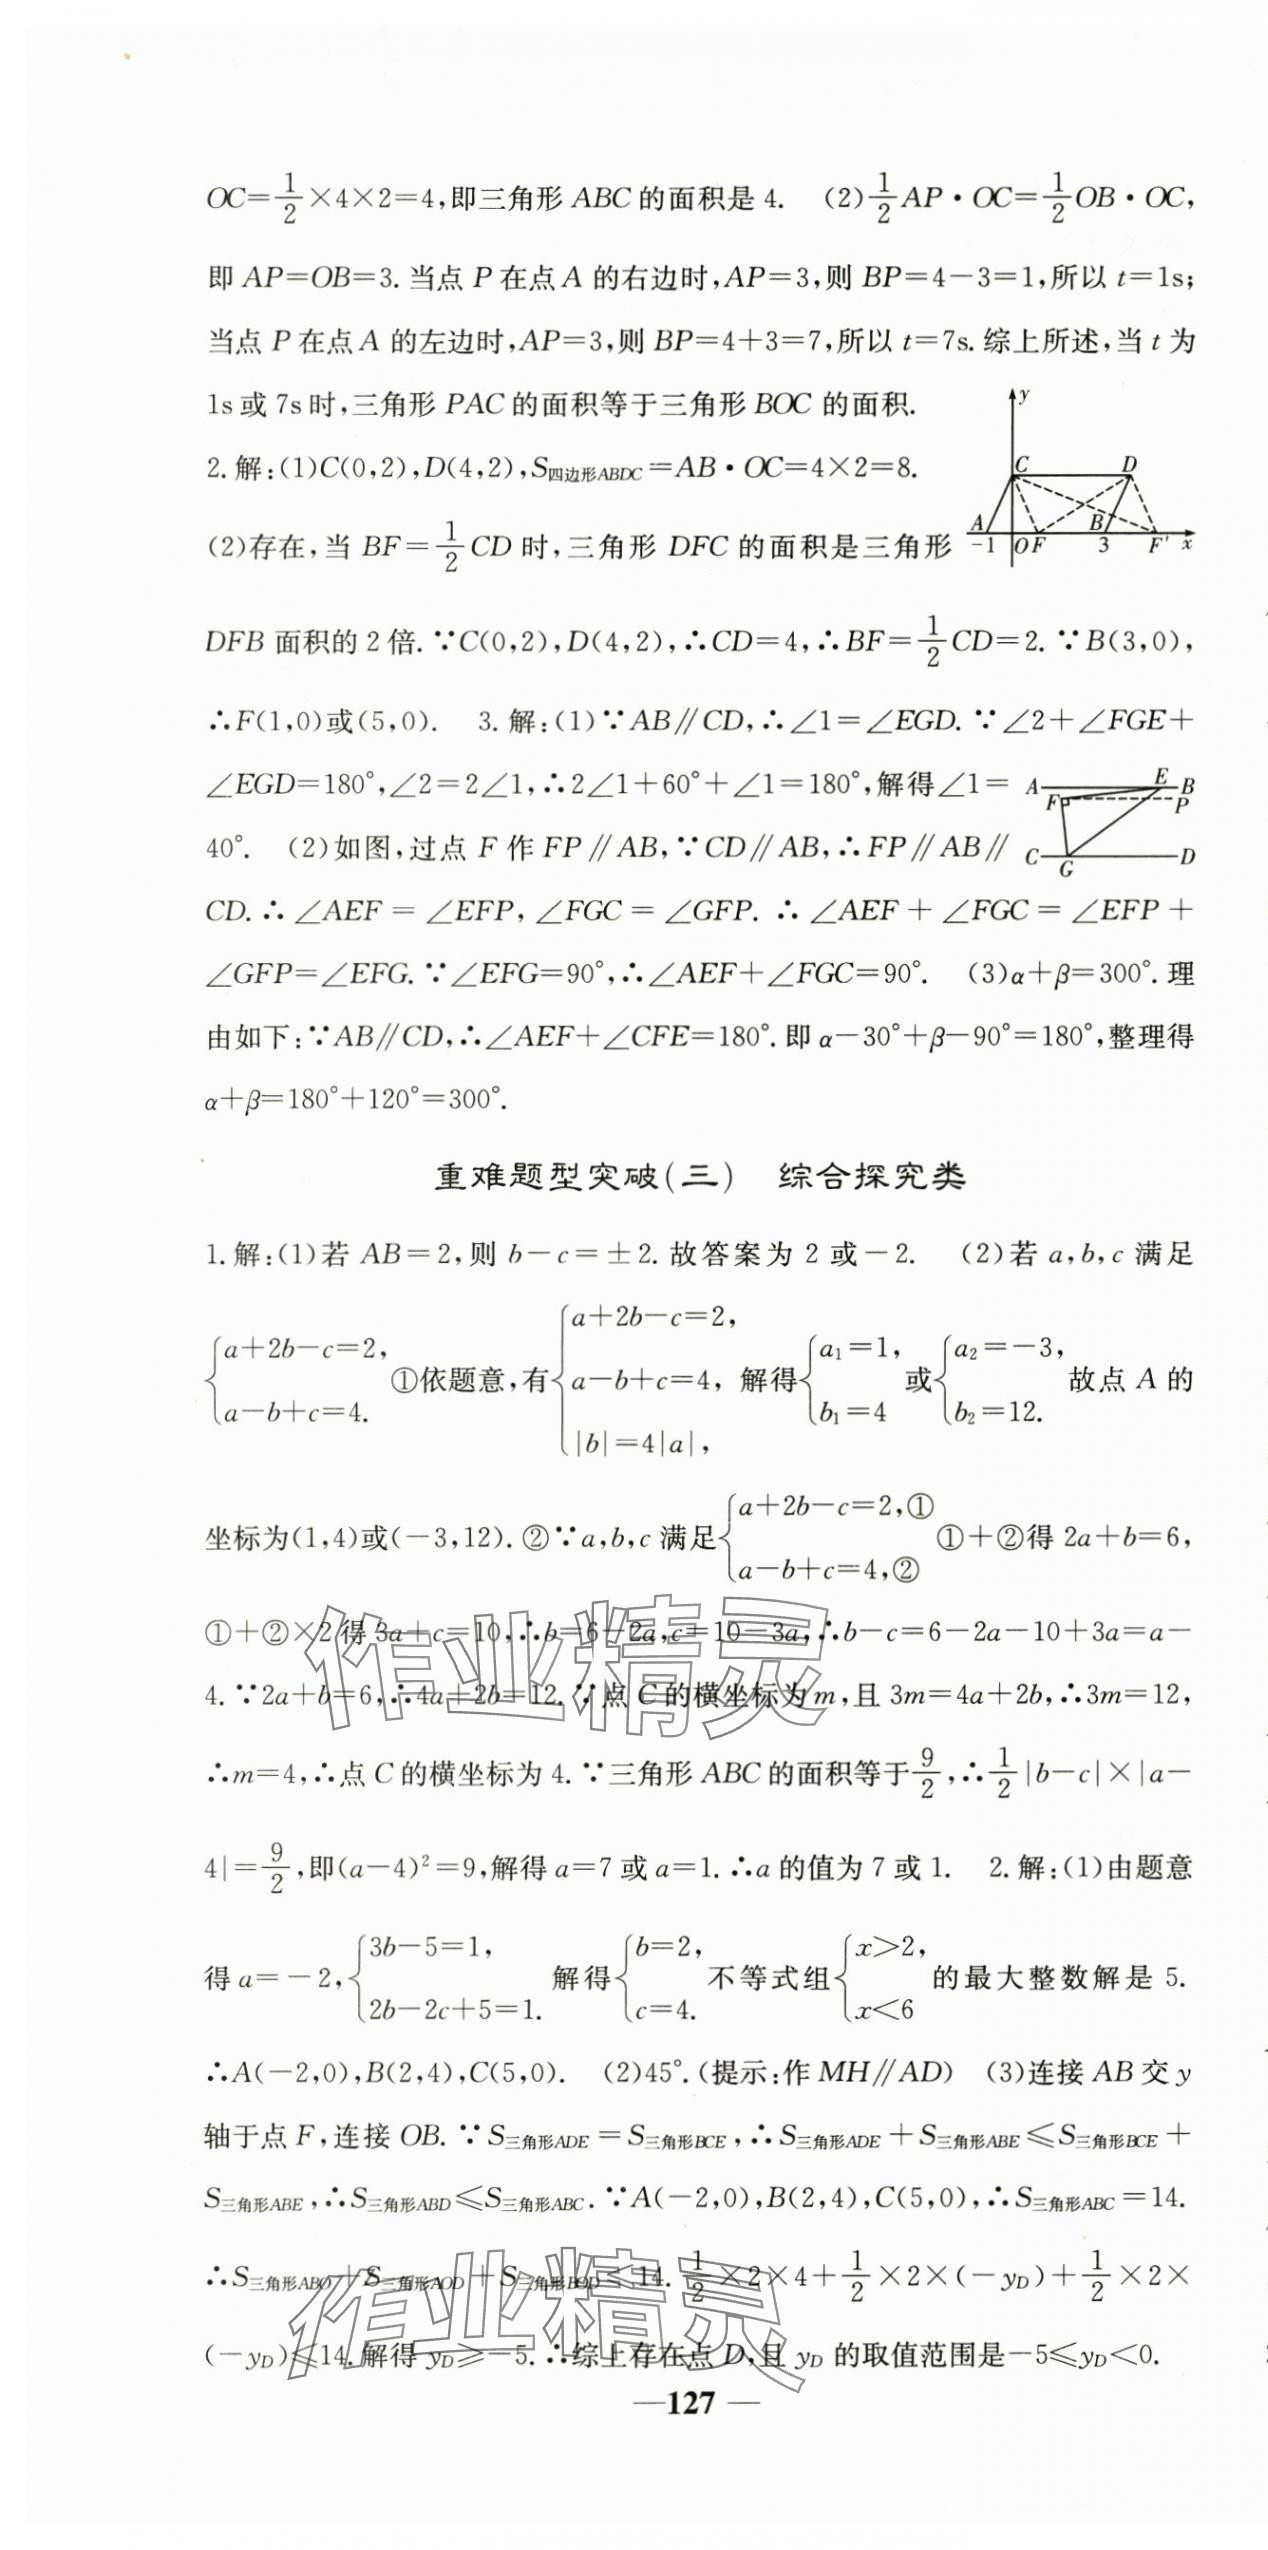 OC=1/2×4×2=4,即三角形 ABC 的面积是 4. (2)1/2AP·OC=1/2OB·OC,
即 AP=OB=3. 当点 P 在点 A 的右边时,AP=3,则 BP=4-3=1,所以 t=1s;
当点 P 在点 A 的左边时,AP=3,则 BP=4+3=7,所以 t=7s. 综上所述,当 t 为
1s 或 7s 时,三角形 PAC 的面积等于三角形 BOC 的面积.
2. 解:(1)C(0,2),D(4,2),S四边形ABDC=AB·OC=4×2=8.
(2)存在,当 BF=1/2CD 时,三角形 DFC 的面积是三角形
y
C D
A B
-1 O F 3 F′ x
DFB 面积的 2 倍. ∵C(0,2),D(4,2),∴CD=4,∴BF=1/2CD=2. ∵B(3,0),
∴F(1,0)或(5,0). 3. 解:(1)∵AB∥CD,∴∠1=∠EGD. ∵∠2+∠FGE+
∠EGD=180°,∠2=2∠1,∴2∠1+60°+∠1=180°,解得∠1=
40°. (2)如图,过点 F 作 FP∥AB,∵CD∥AB,∴FP∥AB∥
A E B
F P
C G D
CD. ∴∠AEF=∠EFP,∠FGC=∠GFP. ∴∠AEF+∠FGC=∠EFP+
∠GFP=∠EFG. ∵∠EFG=90°,∴∠AEF+∠FGC=90°. (3)α+β=300°. 理
由如下:∵AB∥CD,∴∠AEF+∠CFE=180°. 即 α-30°+β-90°=180°,整理得
α+β=180°+120°=300°.
重难题型突破(三) 综合探究类
1. 解:(1)若 AB=2,则 b-c=±2. 故答案为 2 或-2. (2)若 a,b,c 满足
{a+2b-c=2, a-b+c=4. ①依题意,有{a+2b-c=2, a-b+c=4, |b|=4|a|, 解得{a₁=1, b₁=4 或{a₂=-3, b₂=12. 故点 A 的
坐标为(1,4)或(-3,12). ②∵a,b,c 满足{a+2b-c=2,① a-b+c=4,② ①+②得 2a+b=6,
①+②×2 得 3a+c=10,∴b=6-2a,c=10-3a,∴b-c=6-2a-10+3a=a-
4. ∵2a+b=6,∴4a+2b=12. ∵点 C 的横坐标为 m,且 3m=4a+2b,∴3m=12,
∴m=4,∴点 C 的横坐标为 4. ∵三角形 ABC 的面积等于9/2,∴1/2|b-c|×|a-
4|=9/2,即(a-4)²=9,解得 a=7 或 a=1. ∴a 的值为 7 或 1. 2. 解:(1)由题意
得 a=-2,{3b-5=1, 2b-2c+5=1. 解得{b=2, c=4. 不等式组{x>2, x<6 的最大整数解是 5.
∴A(-2,0),B(2,4),C(5,0). (2)45°.(提示:作 MH∥AD) (3)连接 AB 交 y
轴于点 F,连接 OB. ∵S三角形ADE=S三角形BCE,∴S三角形ADE+S三角形ABE≤S三角形BCE+
S三角形ABE,∴S三角形ABD≤S三角形ABC. ∵A(-2,0),B(2,4),C(5,0),∴S三角形ABC=14.
∴S三角形ABO+S三角形AOD+S三角形BOD≤14. 1/2×2×4+1/2×2×(-yD)+1/2×2×
(-yD)≤14. 解得 yD≥-5. ∴综上存在点 D,且 yD 的取值范围是-5≤yD<0.
—127—
作业精灵
作业精灵